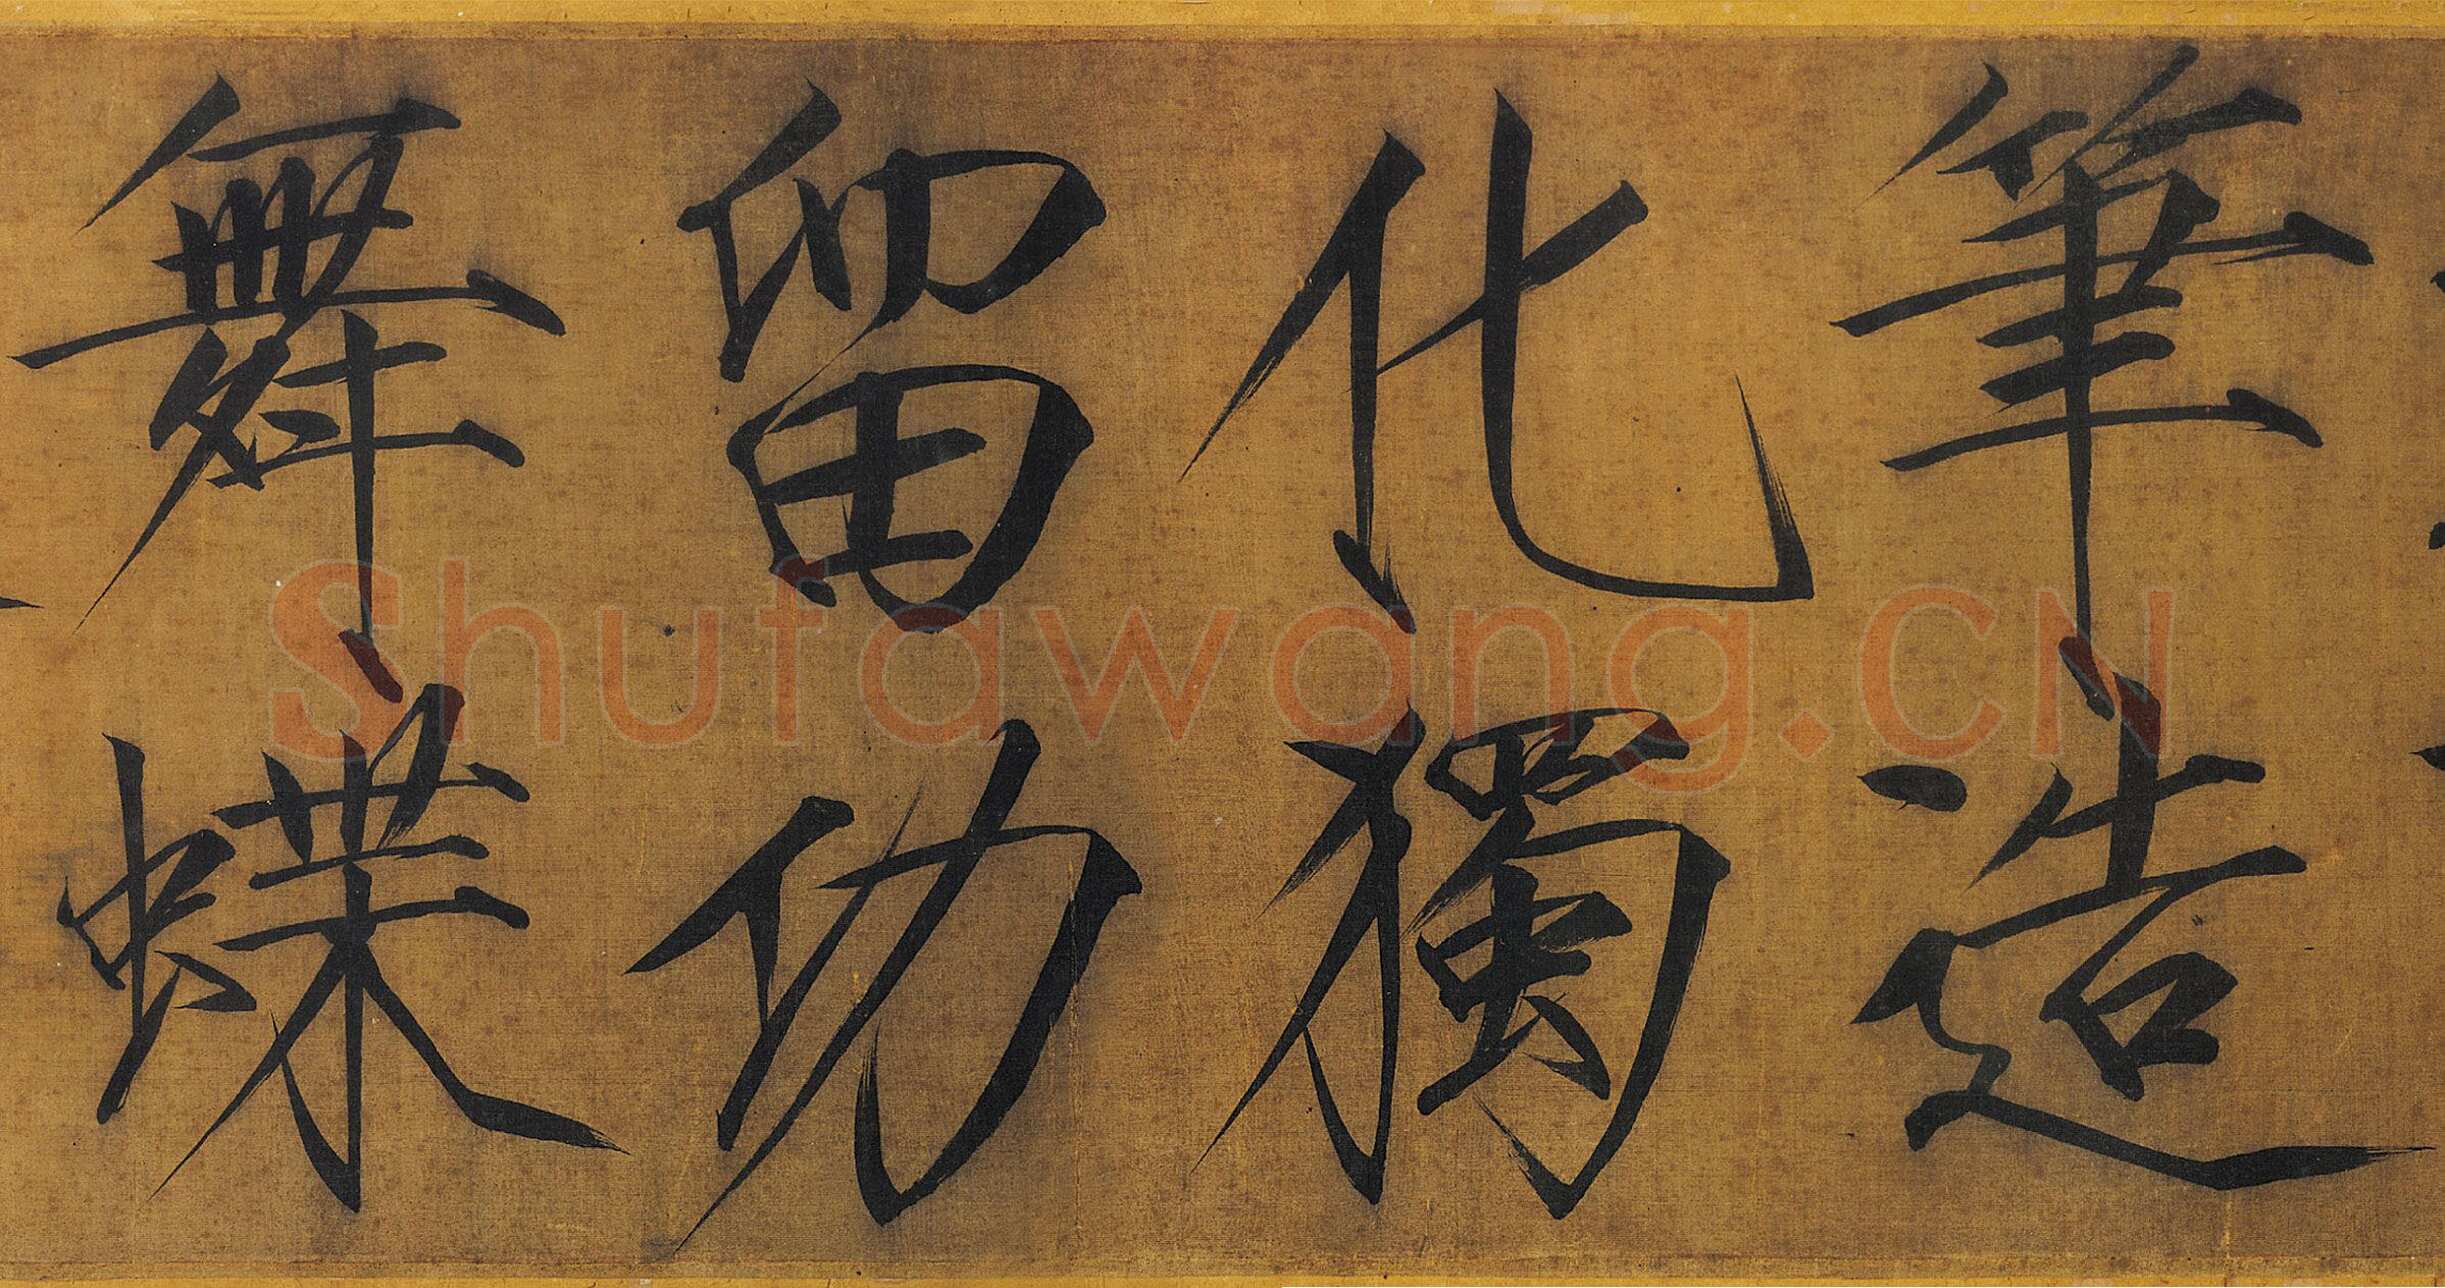 筆造
化獨
留功
舞蝶
Shufawang.CN